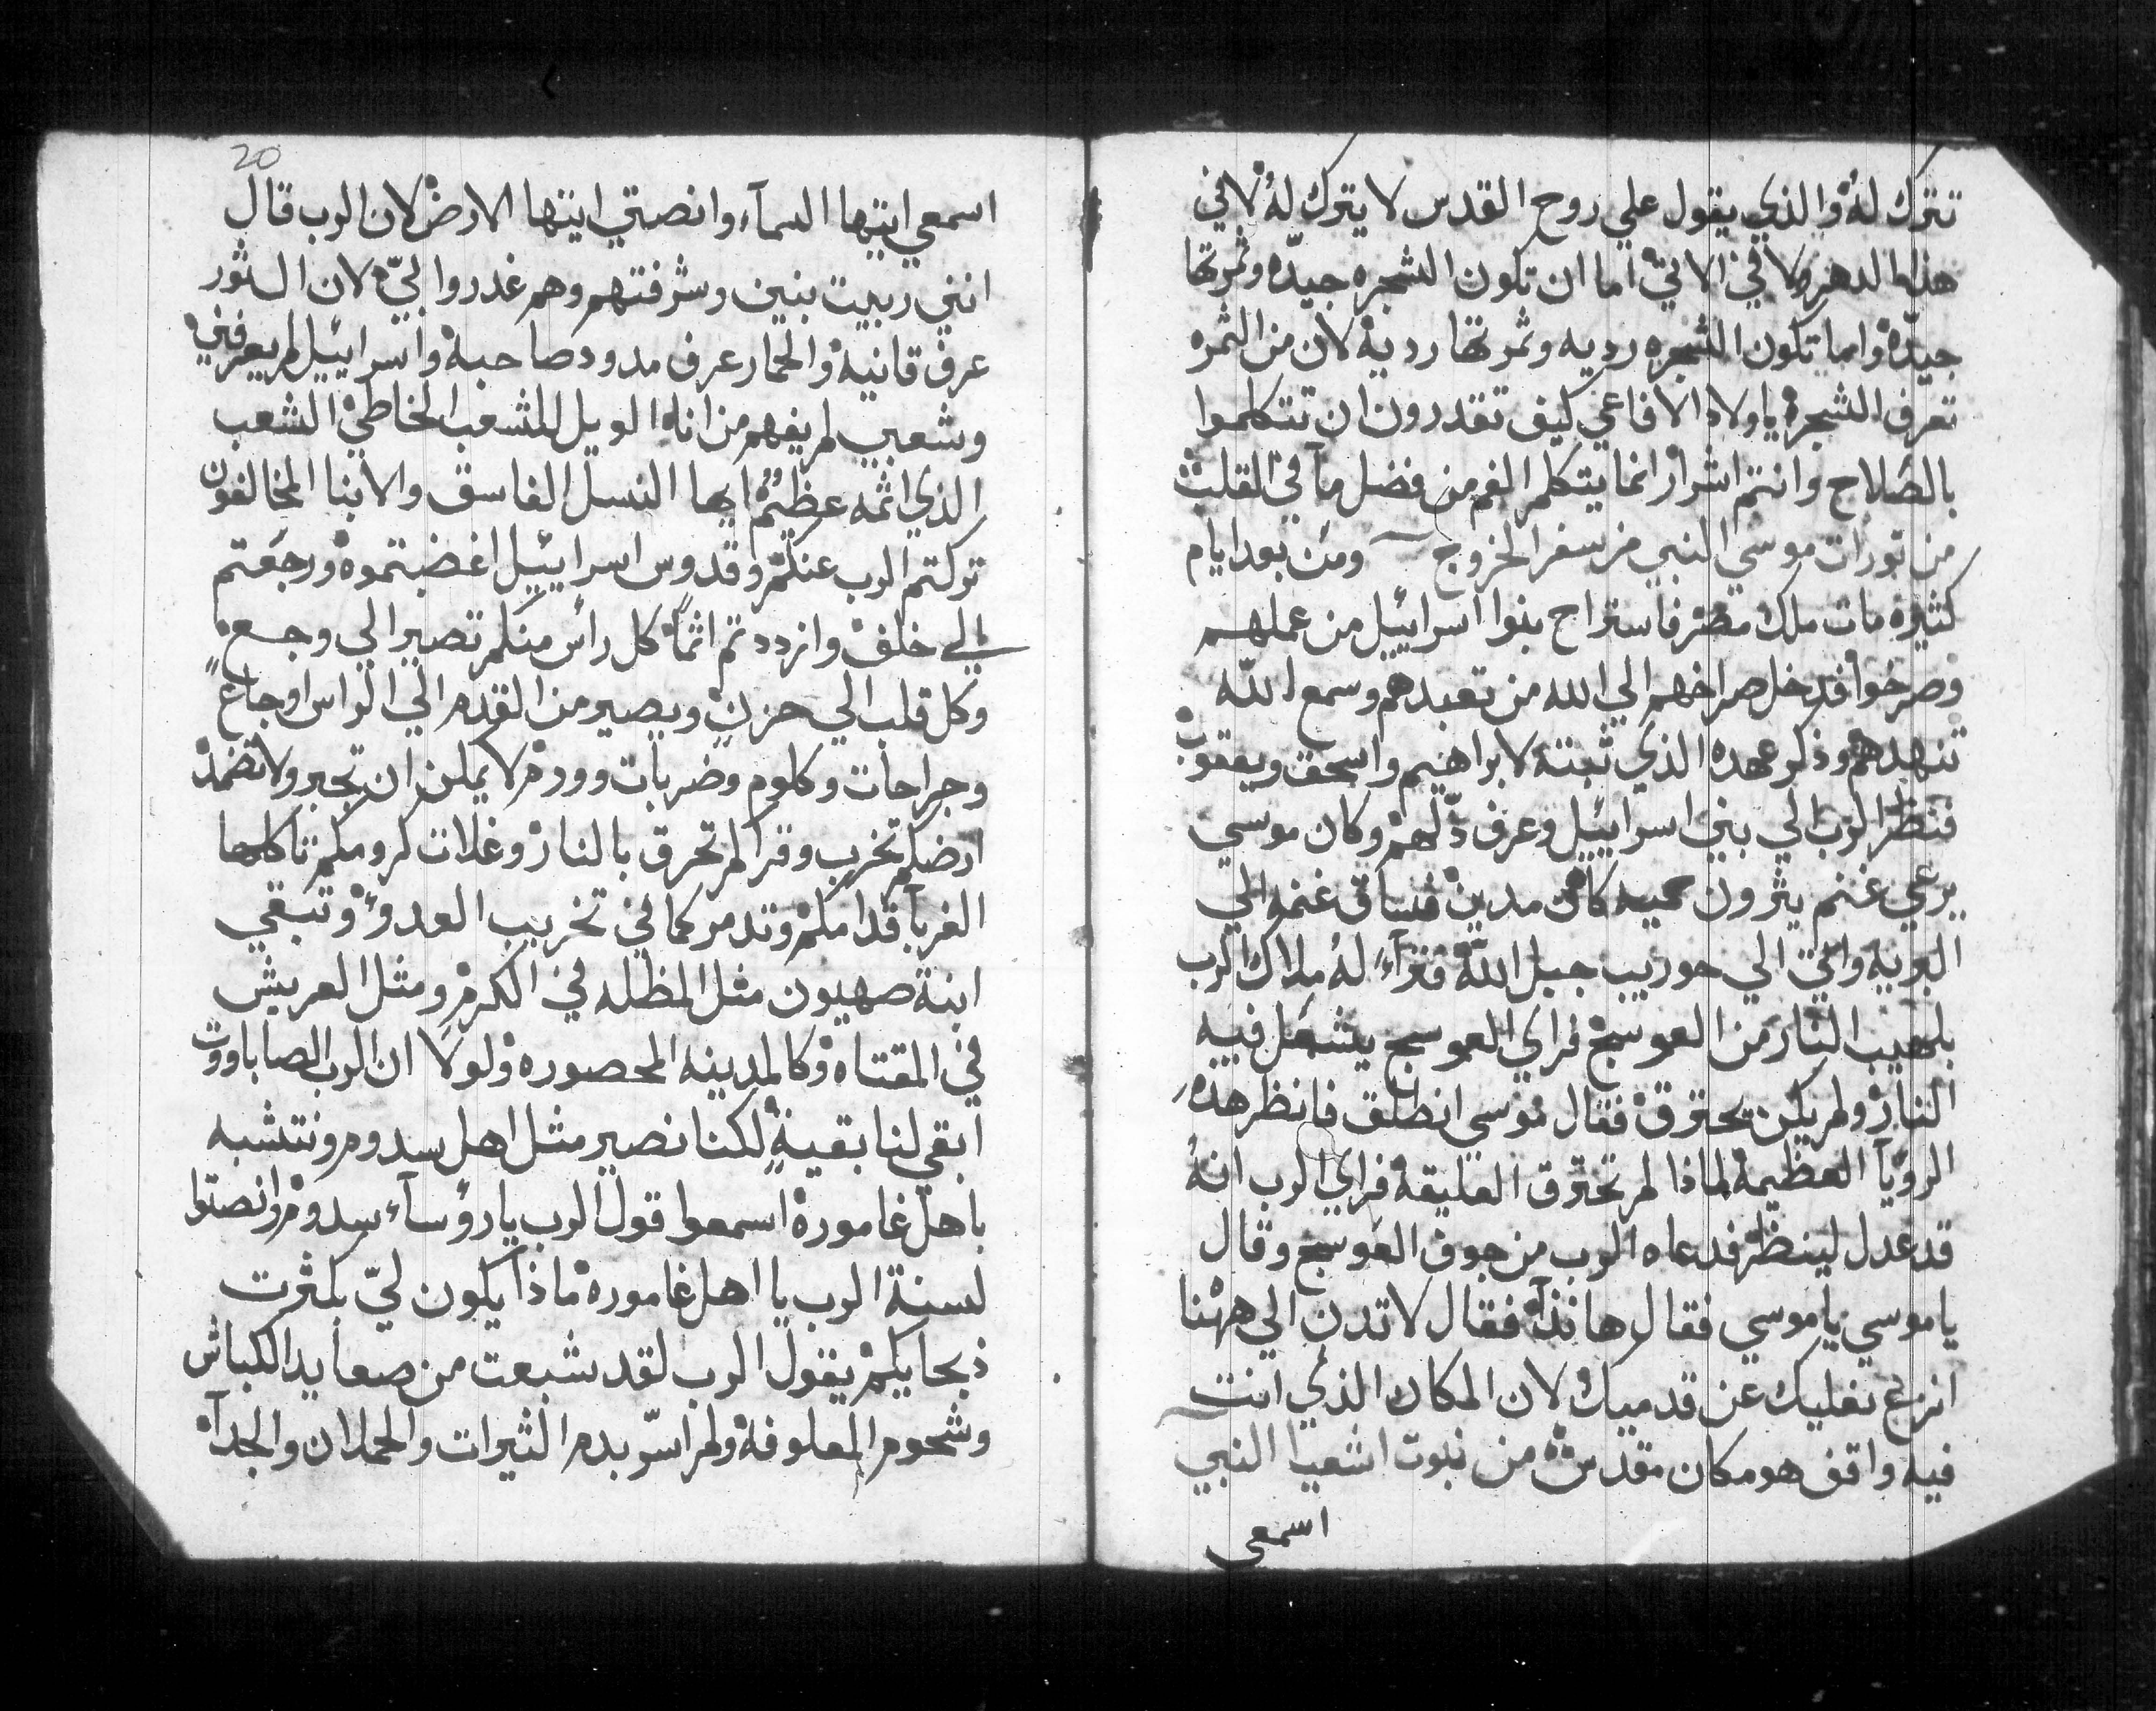 تترك له والذي يقول علي روح القدس لا يترك له لا في
هذا الدهر ولا في الاتي اما ان تكون الشجره جيده وثمرتها
جيده واما تكون الشجره رديه وثمرتها رديه لان من الثمره
تعرف الشجره يا ولاد الافاعي كيف تقدرون ان تتكلموا
بالصلاح وانتم اشرار انما يتكلم الفم من فضل مآ في القلب
من تورات موسي النبي من سفر الخروج ومن بعد ايام
كثيره مات ملك مصر فاستراح بنوا اسراييل من عملهم
وصرخوا فدخل صراخهم الي الله من تعبدهم وسمع الله
تنهدهم وذكر عهده الذي ثبته لابراهيم واسحق ويعقوب
فنظر الرب الي بني اسراييل وعرف ذلهم وكان موسي
يرعي غنم يثرون حميه كاهن مدين فساق غنمه الي
البريه واتي الي حوريب جبل الله فترآءا له ملاك الرب
بلهيب النار من العوسج فراي العوسج يشعل فيه
النار ولم يكن يحترق فقال موسي انطلق فانظر هذه
الرويآ العظيمة لماذا لم تحترق العليقة فراي الرب انه
قد عدل لينظر فدعاه الرب من جوف العوسج وقال
يا موسي يا موسي فقال هانذا فقال لا تدن الي ههنا
انزع نعليك عن قدميك لان المكان الذي انت
فيه واقف هو مكان مقدس من نبوت اشعيا النبي
اسمعي
20
اسمعي ايتها السمآء وانصتي ايتها الارض لان الرب قال
انني ربيت بنين وشرفتهم وهم غدروا بي لان الثور
عرف قانيه والحمار عرف مدود صاحبه واسراييل لم يعرفني
وشعبي لم يفهم من انا الويل للشعب الخاطي الشعب
الذي اثمه عظيم ايها النسل الفاسق والابنا المخالفون
تركتم الرب عنكم وقدوس اسراييل اغضبتموه ورجعتم
الي خلف وازددتم اثما كل رأس منكم تصير الي وجع
وكل قلب الي حزن ويصير من القدم الي الراس اوجاع
وجراحات وكلوم وضربات وورم لا يمكن ان تجبر ولا تضمد
ارضكم تخرب وقراكم تحرق بالنار وغلات كرومكم تاكلها
الغربآ قدامكم وتدمر كما في تخريب العدو وتبقي
ابنة صهيون مثل المظله في الكرم ومثل العريش
في المقتاه وكالمدينه المحصوره ولولا ان الرب الصاباووت
ابقي لنا بقية لكنا نصير مثل اهل سدوم ونتشبه
باهل غاموره اسمعوا قول الرب يا رؤسآء سدوم وانصتوا
لسنة الرب يا اهل غاموره ماذا يكون لي بكثرت
ذبحايكم يقول الرب لقد شبعت من صعايد الكباش
وشحوم المعلوفة ولم اسر بدم الثيرات والحملان والجدآ